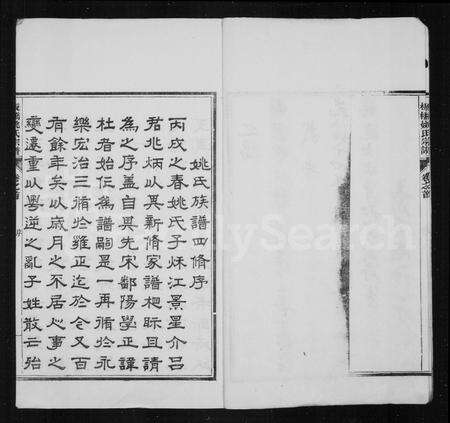 姚氏族譜四脩序
丙戌之春姚氏子秌江景星介呂
君兆炳以其新脩家譜梔眎且請
為之序蓋自其先宋鄱陽學正諱
杜者始作為譜嗣是一再脩於永
樂宏治三脩於雍正迄於今又百
有餘年矣以歲月之不居人事之
變遷重以粵逆之亂子姓散亡殆
姚氏宗譜
卷之首
序